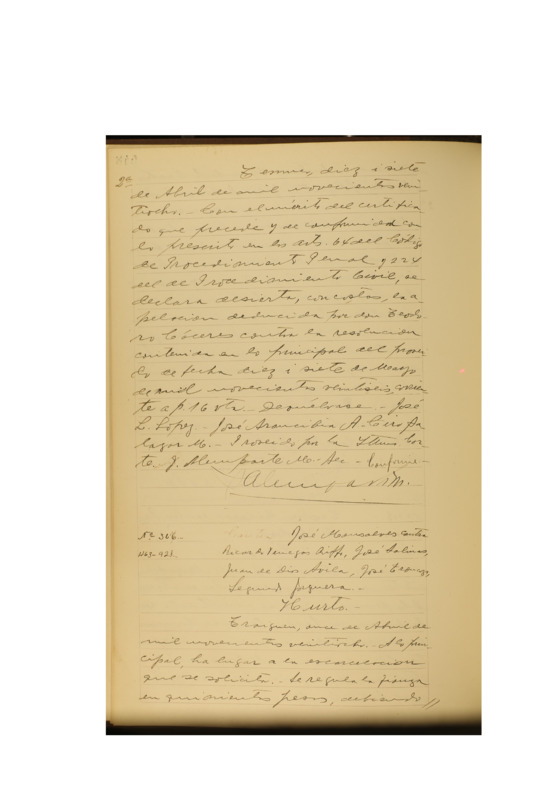 2ª Temuco, diez i siete
de Abril de mil novecientos vein-
tiocho. - Con el mérito del certifica-
do que precede y de conformidad con
lo prescrito en los arts. 64 del Código
de Procedimiento Penal y 224
del de Procedimiento Civil, se
declara desierta, con costas, la a-
pelación deducida por don Teodo-
ro Cáceres contra la resolucion
contenida en lo principal del provei-
do de fecha diez i siete de Mayo
de mil novecientos veintiseis, corrien-
te a f. 16 vta. - Devuélvase. - José
L. Lopez. - José Arancibia A. - Ciro Sa-
lazar M. - Proveido por la Iltma. Cor-
te. J. Alemparte M. - Sec. - Conforme. -
Nº 306. - José Monsalves contra
Ricardo Venegas, José Salinas,
Juan de Dios Avila, José
Segundo Jaguera. -
Hurto. -
Traiguen, once de Abril de
mil novecientos veintiocho. - A lo prin-
cipal, ha lugar a la excarcelacion
que se solicita. - Se regula la fianza
en quinientos pesos, debiendo //